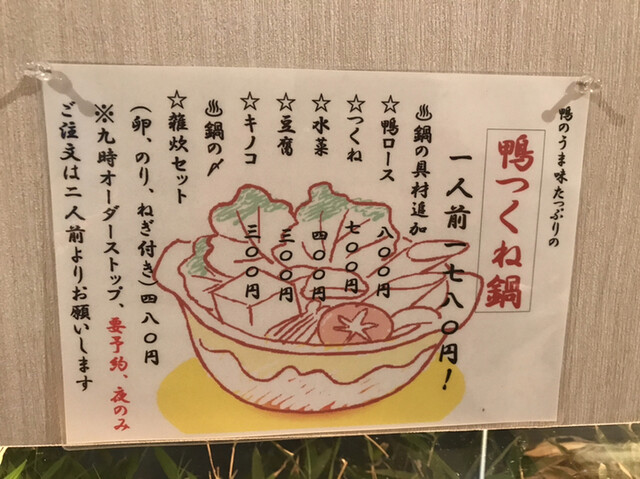 鴨のうま味たっぷりの
鴨つくね鍋
一人前一七八〇円！
♨鍋の具材追加
☆鴨ロース 八〇〇円
☆つくね 七〇〇円
☆水菜 四〇〇円
☆豆腐 三〇〇円
☆キノコ 三〇〇円
♨鍋の〆
☆雑炊セット
(卵、のり、ねぎ付き)四八〇円
※九時オーダーストップ、要予約、夜のみ
ご注文は二人前よりお願いします